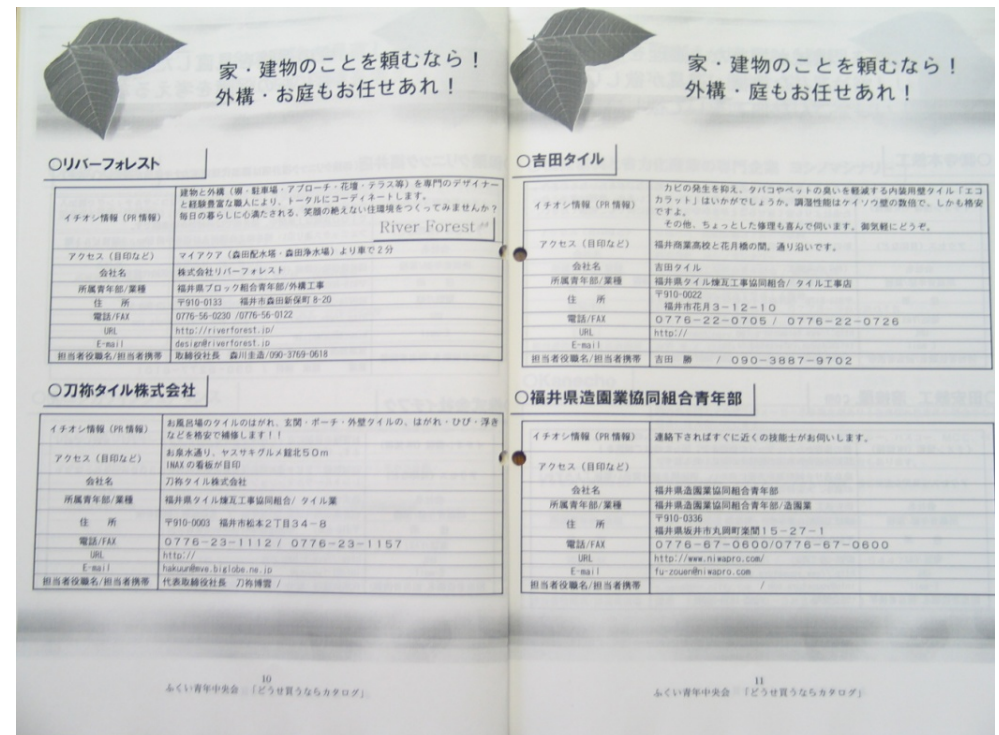 家・建物のことを頼むなら！
外構・お庭もお任せあれ！
○リバーフォレスト
イチオシ情報（PR情報）
建物と外構（塀・駐車場・アプローチ・花壇・テラス等）を専門のデザイナー
と経験豊富な職人により、トータルにコーディネートします。
毎日の暮らしに心満たされる、笑顔の絶えない住環境をつくってみませんか？
River Forest
アクセス（目印など） マイアクア（森田配水塔・森田浄水場）より車で2分
会社名 株式会社リバーフォレスト
所属青年部/業種 福井県ブロック組合青年部/外構工事
住　所 〒910-0133　福井市森田新保町8-20
電話/FAX 0776-56-0230 /0776-56-0122
URL http://riverforest.jp/
E-mail design@riverforest.jp
担当者役職名/担当者携帯 取締役社長　森川圭造/090-3769-0618
○刀祢タイル株式会社
イチオシ情報（PR情報）
お風呂場のタイルのはがれ、玄関・ポーチ・外壁タイルの、はがれ・ひび・浮き
などを格安で補修します！！
アクセス（目印など）
お泉水通り、ヤスサキグルメ館北50m
INAXの看板が目印
会社名 刀祢タイル株式会社
所属青年部/業種 福井県タイル煉瓦工事協同組合/ タイル業
住　所 〒910-0003　福井市松本2丁目34－8
電話/FAX 0776－23－1112 / 0776－23－1157
URL http://
E-mail hakuun@mve.biglobe.ne.jp
担当者役職名/担当者携帯 代表取締役社長　刀祢博雲 /
10
ふくい青年中央会　「どうせ買うならカタログ」
家・建物のことを頼むなら！
外構・庭もお任せあれ！
○吉田タイル
イチオシ情報（PR情報）
カビの発生を抑え、タバコやペットの臭いを軽減する内装用壁タイル「エコ
カラット」はいかがでしょうか。調湿性能はケイソウ壁の数倍で、しかも格安
ですよ。
その他、ちょっとした修理も喜んで伺います。御気軽にどうぞ。
アクセス（目印など） 福井商業高校と花月橋の間、通り沿いです。
会社名 吉田タイル
所属青年部/業種 福井県タイル煉瓦工事協同組合/ タイル工事店
住　所 〒910-0022
福井市花月3－12－10
電話/FAX 0776－22－0705 / 0776－22－0726
URL http://
E-mail
担当者役職名/担当者携帯 吉田　勝　　/ 090－3887－9702
○福井県造園業協同組合青年部
イチオシ情報（PR情報） 連絡下さればすぐに近くの技能士がお伺いします。
アクセス（目印など）
会社名 福井県造園業協同組合青年部
所属青年部/業種 福井県造園業協同組合青年部/造園業
住　所 〒910-0336
福井県坂井市丸岡町楽間15－27－1
電話/FAX 0776－67－0600/0776－67－0600
URL http://www.niwapro.com/
E-mail fu-zouen@niwapro.com
担当者役職名/担当者携帯 /
11
ふくい青年中央会　「どうせ買うならカタログ」